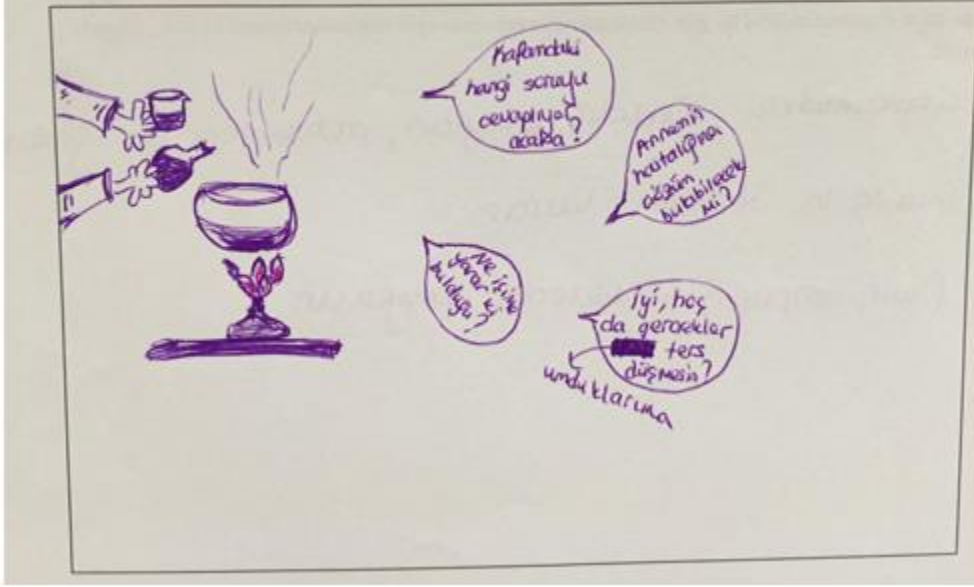 Kafandaki
hangi soruyu
cevaplıyor
acaba?
Annenin
hastalığına
çözüm
bulabilecek
mi?
Ne işine
yarar ki
bulduğu?
İyi, hoş
da gerçekler
ters
düşmesin?
umduklarıma